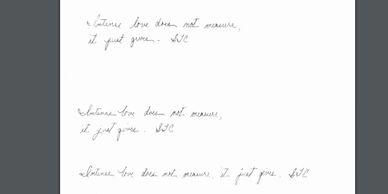 Intense love does not measure,
it just gives. STC
Intense love does not measure,
it just gives. STC
Intense love does not measure, it just gives. STC